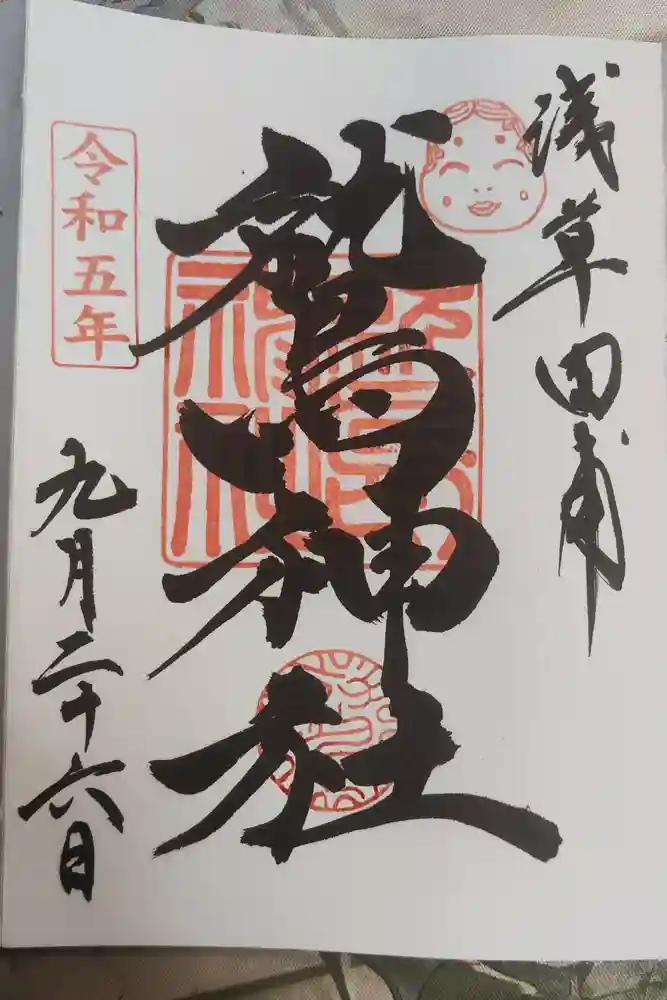 浅草田甫
鷲神社
令和五年
九月二十六日